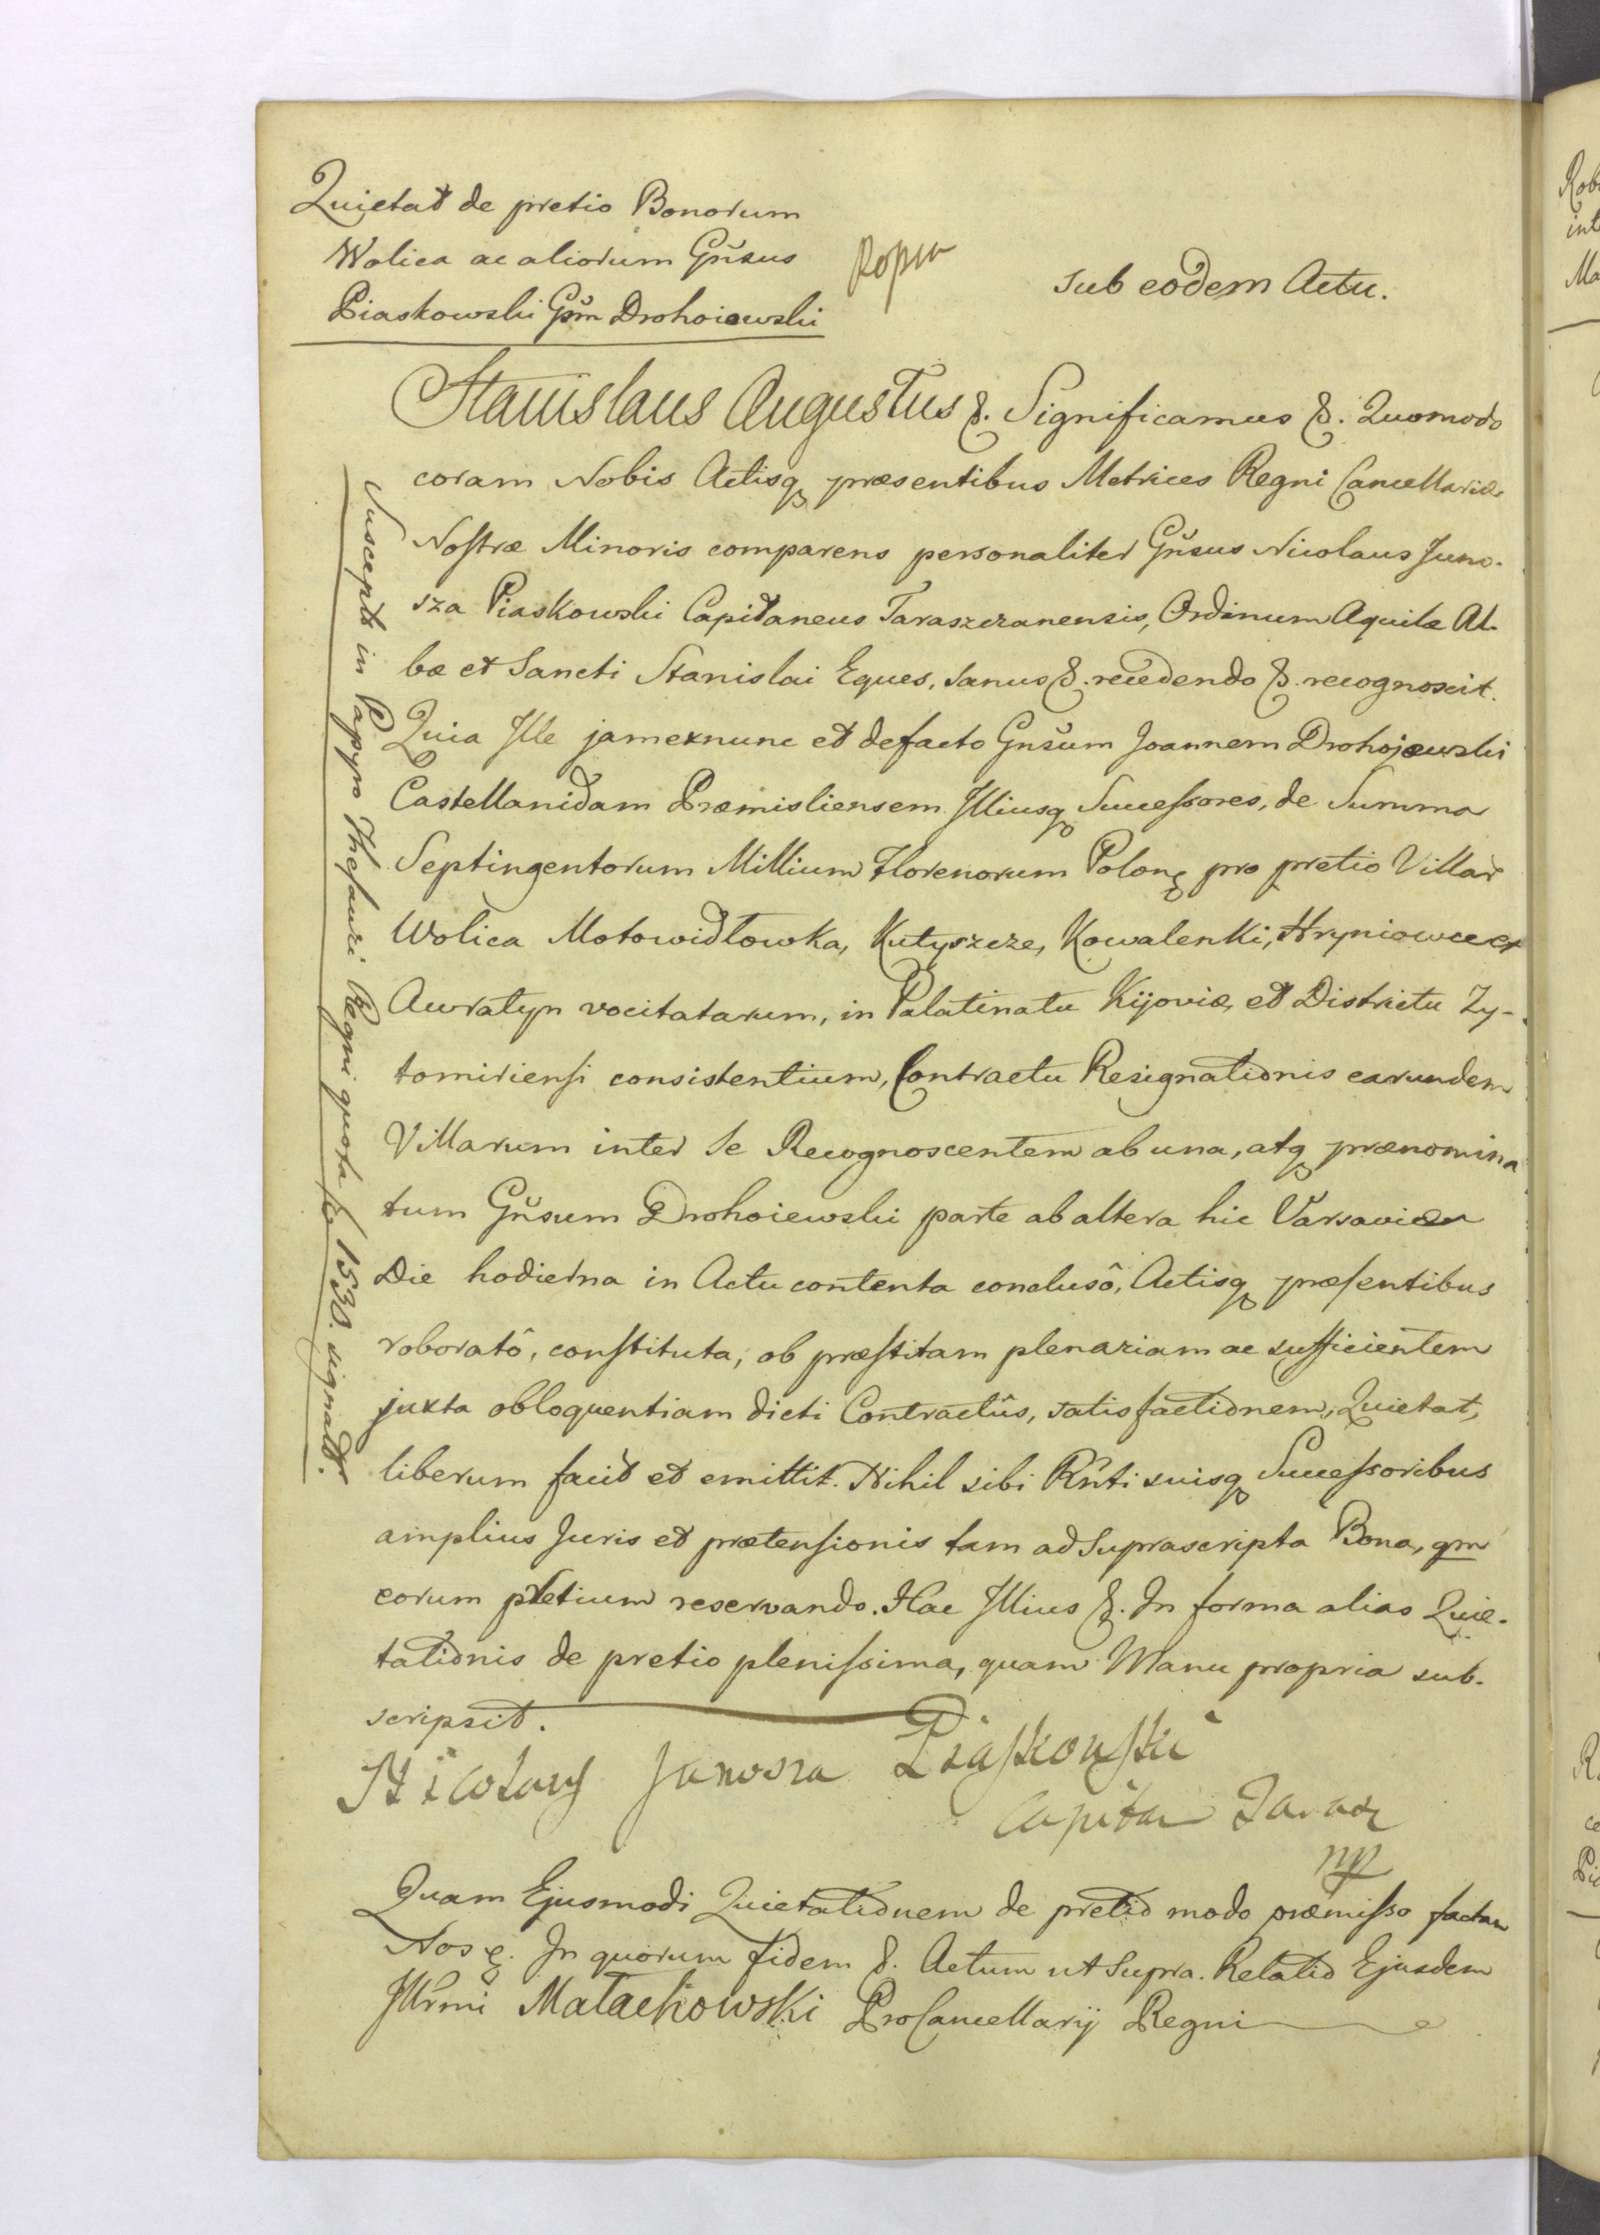 Quietat de pretio Bonorum
Wolica ac aliorum Gn̄sus
Piaskowski Gsm Drohoiewski
sub eodem Actu.
Stanislaus Augustus &. Significamus &. Quomodo
coram Nobis Actisq, præsentibus Metrices Regni Cancellariæ
Noſtræ Minoris comparens personaliter Gn̄sus Nicolaus Juno-
sza Piaskowski Capitaneus Taraszczanensis, Ordinum Aquilæ Al-
bæ et Sancti Stanislai Eques, sanus &. recedendo &. recognoscit.
Quia Ille jamexnunc et defacto Gn̄sum Joannem Drohojewski
Castellanidam Præmisliensem Illiusq Succeſsores, de Summa
Septingentorum Millium Florenorum Polonę pro pretio Villar
Wolica Motowidłowka, Kutyszcze, Kowalenki, Hryniowce et
Awratyn vocitatarum, in Palatinatu Kijoviæ, et Districtu Zy-
tomirienſi consistentium, Contractu Resignationis earundem
Villarum inter Se Recognoscentem ab una, atq prænomina
tum Gn̄sum Drohoiewski parte ab altera hic Varsaviæ
Die hodierna in Actu contenta conclusô, Actisq præſentibus
roboratô, conſtituta, ob præſtitam plenariam ac sufficientem
juxta obloquentiam dicti Contractûs, satisfactionem, Quietat,
liberum facit et emittit. Nihil sibi Rn̄ti suisq Succeſsoribus
amplius Juris et prætenſionis tam ad Suprascripta Bona, qm
eorum pretium reservando. Hac Illius &. In forma alias Quie-
tationis de pretio pleniſsima, quam Manu propria sub-
scripsit.
Nicolaus Junosza Piaſkowſki
Capitan Tarasz
mp
Quam Ejusmodi Quietationem de pretio modo præmiſso factam
Nos &. In quorum fidem &. Actum ut Supra. Relatio Ejusdem
Illr̄mi Małachowski ProCancellarij Regni
Suscepta in Papyro Theſauri Regni quota 1530. signatt.